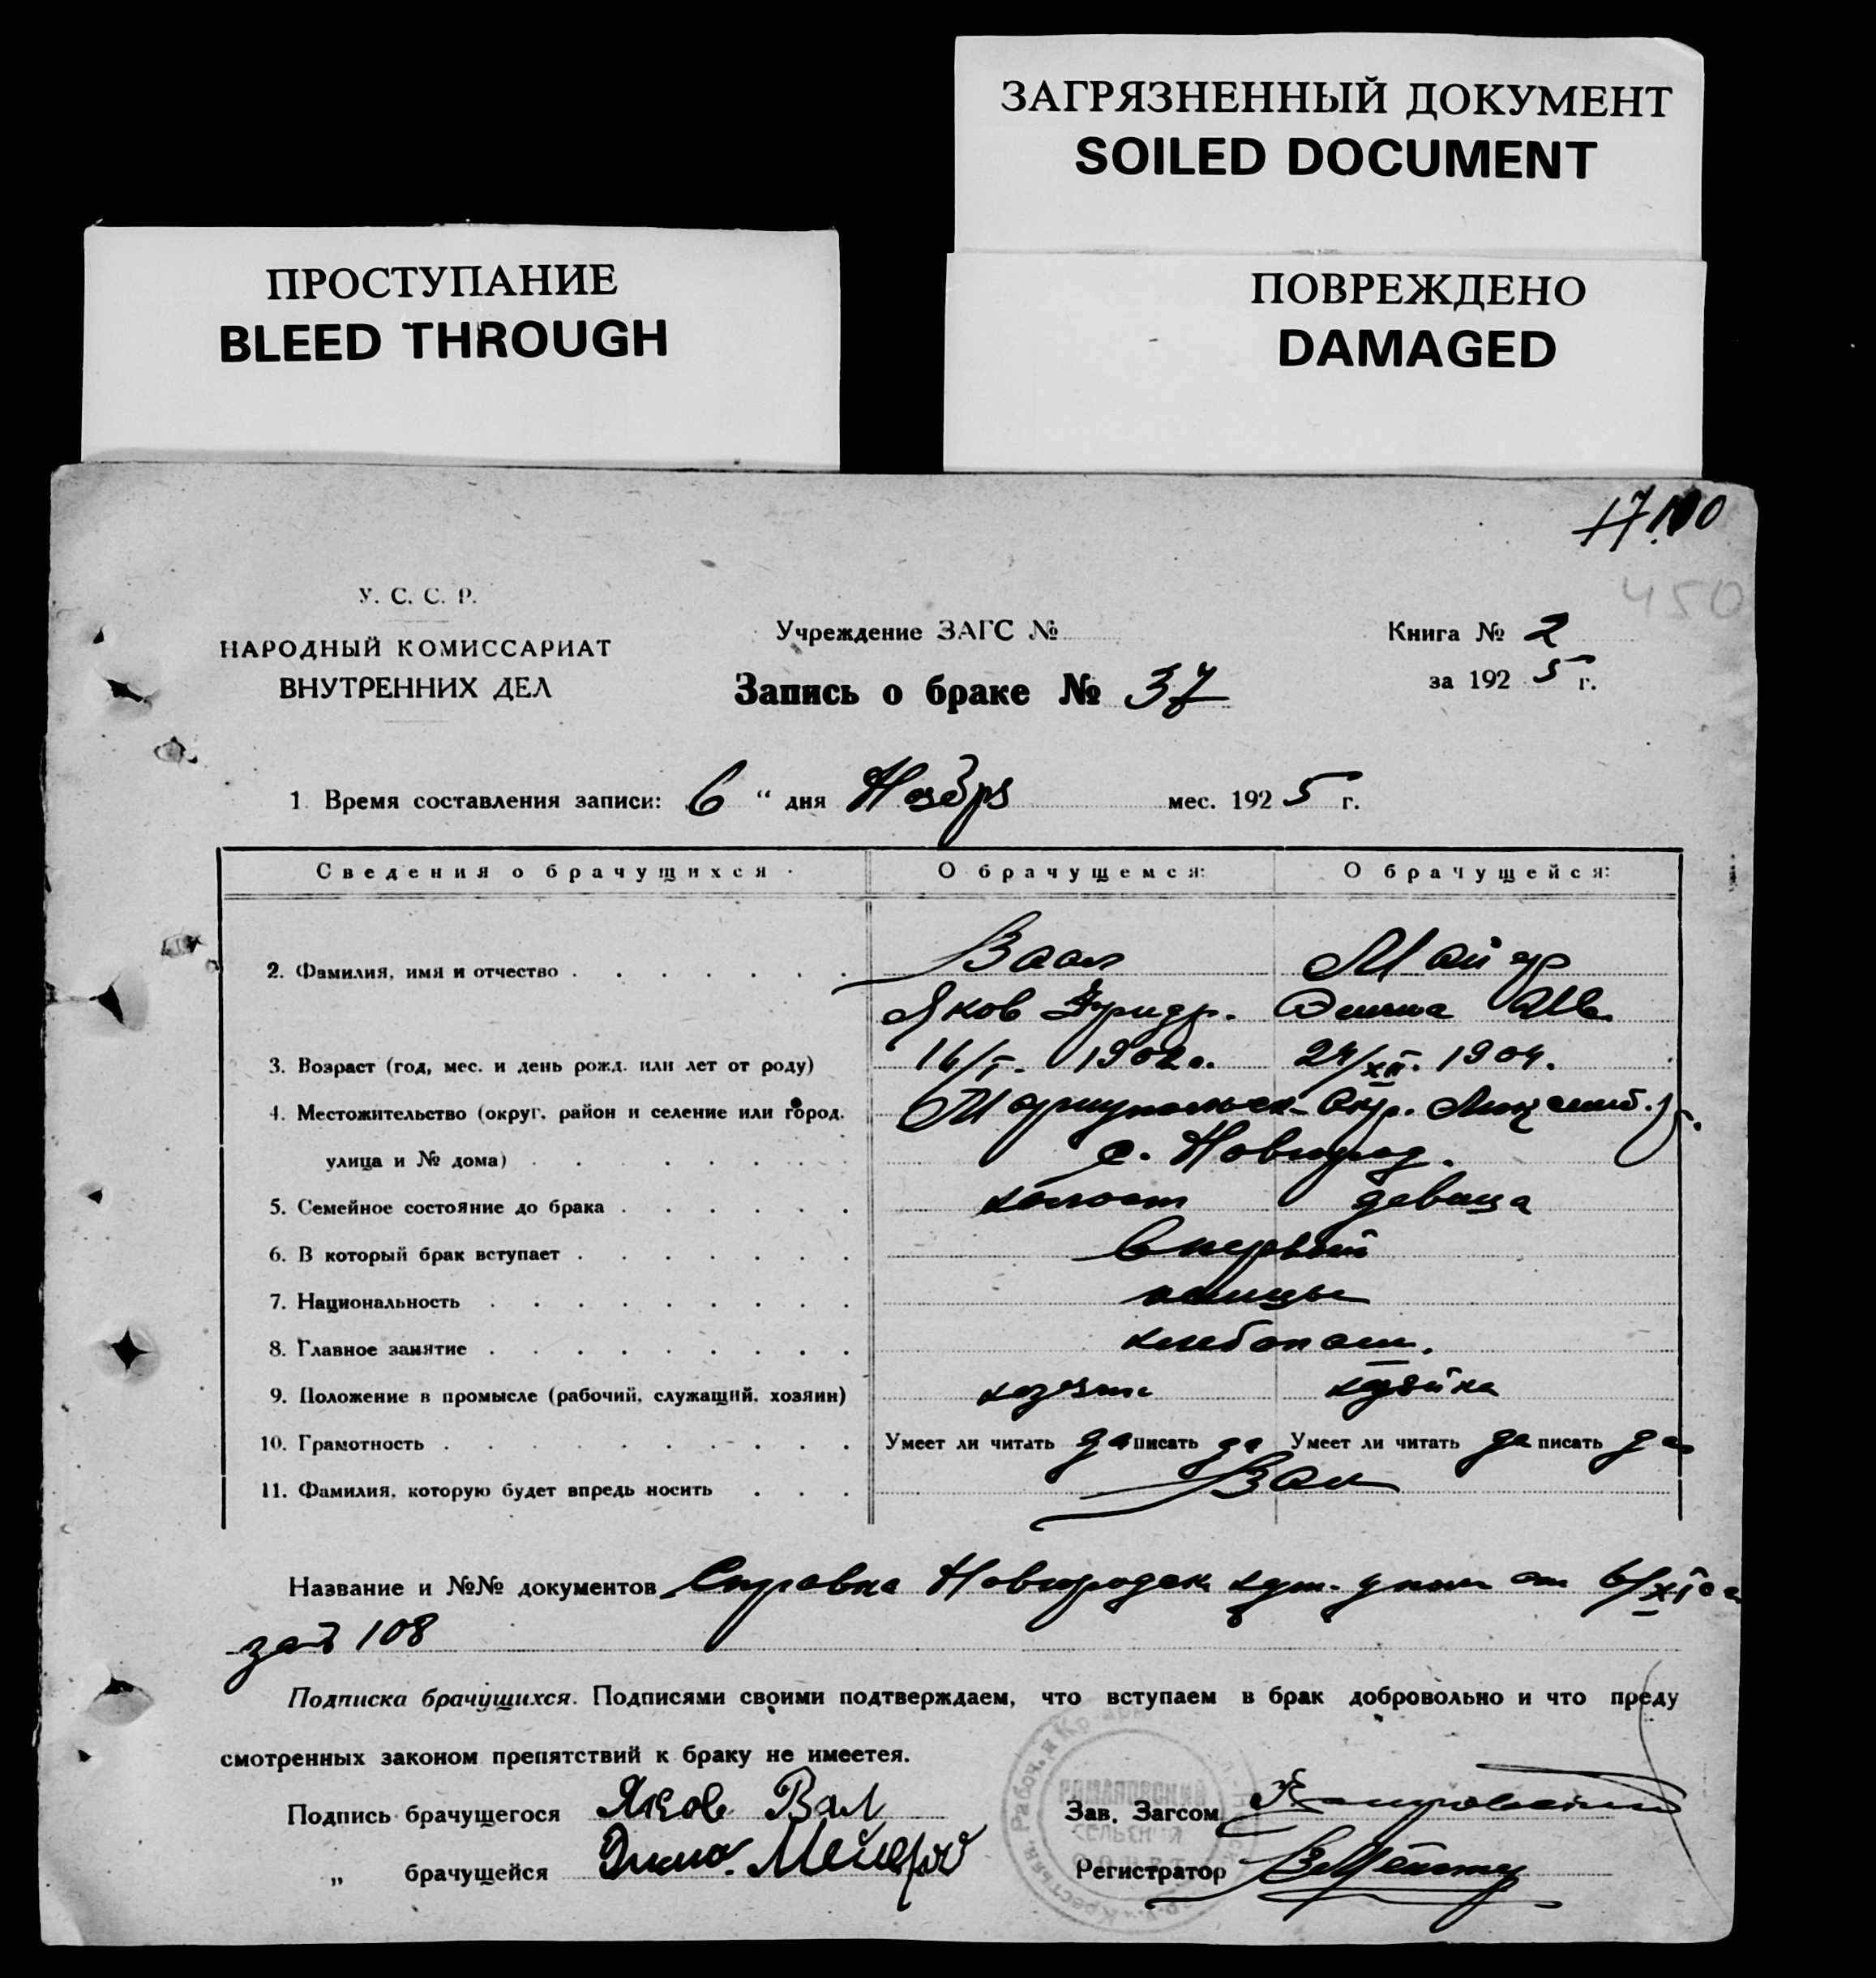 ЗАГРЯЗНЕННЫЙ ДОКУМЕНТ
SOILED DOCUMENT
ПРОСТУПАНИЕ
BLEED THROUGH
ПОВРЕЖДЕНО
DAMAGED
450
У. С. С. Р.
НАРОДНЫЙ КОМИССАРИАТ
ВНУТРЕННИХ ДЕЛ
Учреждение ЗАГС №
Запись о браке № 37
Книга № 2
за 1925 г.
1. Время составления записи: 6 " дня Ноября мес. 1925 г.
Сведения о брачущихся О брачущемся: О брачущейся:
2. Фамилия, имя и отчество . . . . . . . Ваал Майер
Яков Фридр. Эмма
3. Возраст (год, мес. и день рожд. или лет от роду) 16/I. 1902 г. 24/XII. 1904.
4. Местожительство (округ, район и селение или город, Мариупольск. Окр.
улица и № дома) . . . . . . . . с. Новгород.
5. Семейное состояние до брака . . . . . . холост девица
6. В который брак вступает . . . . . . . В первый
7. Национальность . . . . . . . . . немцы
8. Главное занятие . . . . . . . . . хлебопаш.
9. Положение в промысле (рабочий, служащий, хозяин) хозяин хозяйка
10. Грамотность . . . . . . . . . . Умеет ли читать да писать да Умеет ли читать да писать да
11. Фамилия, которую будет впредь носить . . . Ваал
Название и №№ документов Справка Новгородск. от 6/XI
за № 108
Подписка брачущихся. Подписями своими подтверждаем, что вступаем в брак добровольно и что преду
смотренных законом препятствий к браку не имеетея.
Подпись брачущегося Яков Вал
" брачущейся
Зав. Загсом
Регистратор
РОМАНОВСКИЙ
СЕЛЬСКИЙ